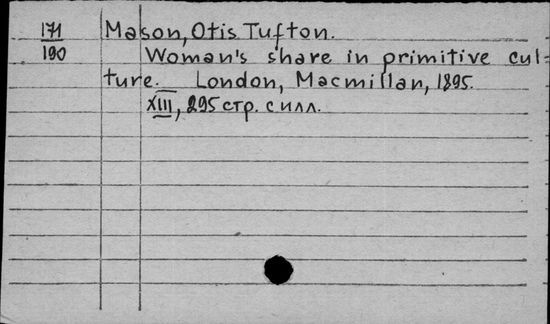 171 Mason, Otis Tufton.
190 Woman's share in primitive cul=
ture. London, Macmillan, 1895.
XIII, 295 стр. с илл.